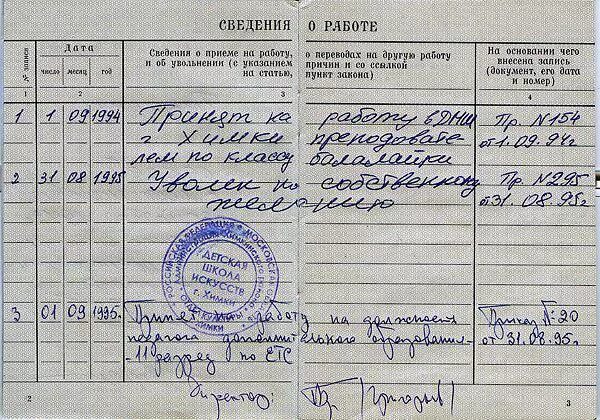 СВЕДЕНИЯ О РАБОТЕ
№ записи
Дата
число месяц год
Сведения о приеме на работу, о переводах на другую работу
и об увольнении (с указанием причин и со ссылкой
на статью, пункт закона)
На основании чего
внесена запись
(документ, его дата
и номер)
1 2 3 4
1 1 09 1994 Принят на работу в ДШИ Пр. N154
г Химки преподавате- от 1.09.94г
лем по классу балалайки
2 31 08 1995 Уволен по собственному Пр. N295
желанию от 31.08.95г
РОССИЙСКАЯ ФЕДЕРАЦИЯ МОСКОВСКАЯ
ДЕТСКАЯ
ШКОЛА
ИСКУССТВ
г. Химки
3 01 09 1995. на работу на должность Приказ №20
педагога дополнительного образования- от 31.08.95г.
-11 разряд по ЕТС
Директор:
2 3